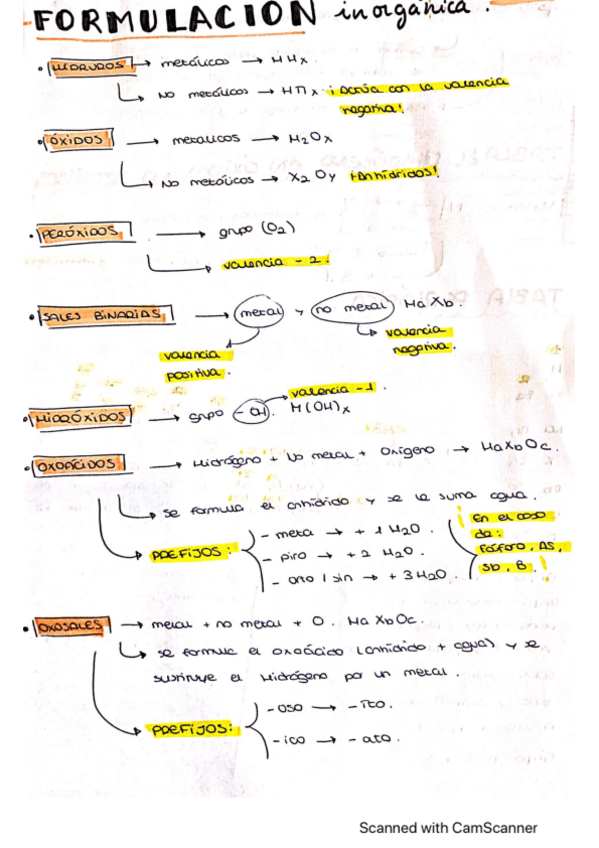 FORMULACIÓN inorgánica.
• HIDRUROS → metálicos → MHx
↳ No metálicos → HNx. ¡Actúa con la valencia
negativa!
• ÓXIDOS → metálicos → M2Ox
↳ No metálicos → X2Oy ¡Anhídridos!
• PERÓXIDOS → grupo (O2)
↳ valencia -2.
• SALES BINARIAS → metal y no metal MaXb.
valencia positiva.
valencia negativa.
valencia -1.
• HIDRÓXIDOS → grupo -OH. M(OH)x
• OXOÁCIDOS → Hidrógeno + No metal + Oxígeno → HaXbOc.
↳ se formula el anhídrido y se le suma agua.
PREFIJOS:
- meta → + 1 H2O.
- piro → + 2 H2O.
- orto / sin → + 3 H2O.
¡En el caso
de:
Fósforo, As,
Sb, B.!
• OXOSALES → metal + no metal + O. MaXbOc.
↳ se formula el oxoácido (anhídrido + agua) y se
sustituye el Hidrógeno por un metal.
PREFIJOS:
- oso → - ito.
- ico → - ato.
Scanned with CamScanner